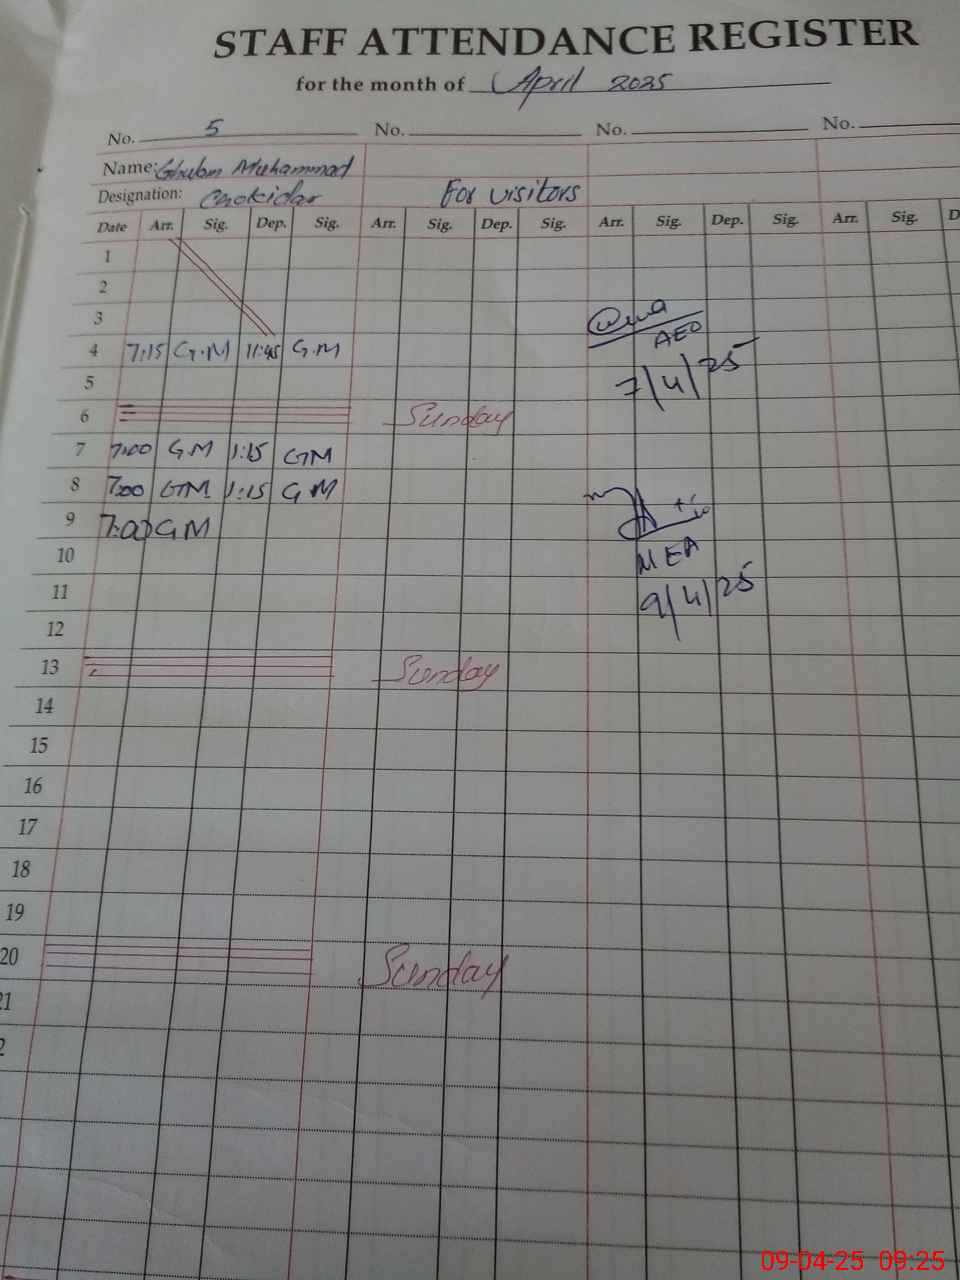 STAFF ATTENDANCE REGISTER
for the month of April 2025
No. 5 No. No. No.
Name: Ghulam Muhammad
Designation: Caokidar For visitors
Date Arr. Sig. Dep. Sig. Arr. Sig. Dep. Sig. Arr. Sig. Dep. Sig. Arr. Sig. D
1
2
3
AEO
4 7:15 G.M 11:45 G.M
7/4/25
5
6 Sunday
7 7:00 G.M 1:15 GM
8 7:00 GM 1:15 G M
9 7:00 G M
10 MEA
11 9/4/25
12
13 Sunday
14
15
16
17
18
19
20 Sunday
21
2
09-04-25 09:25